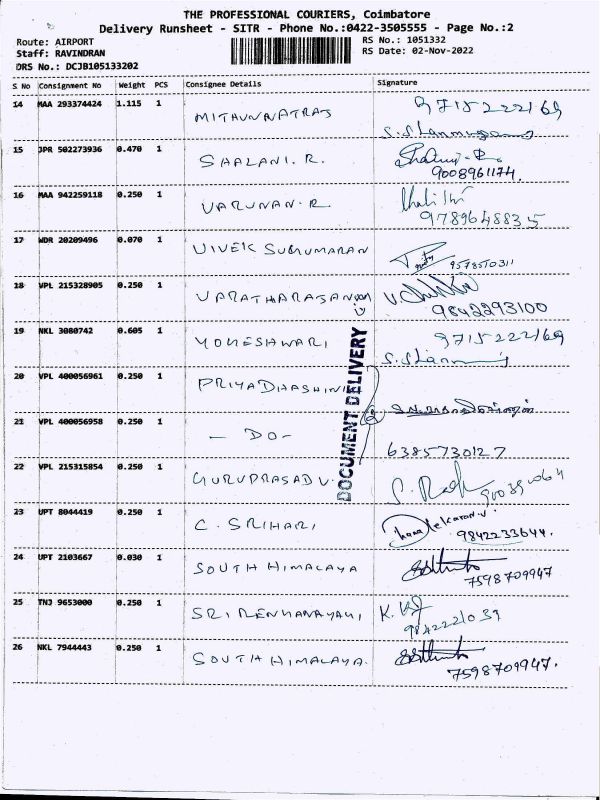 THE PROFESSIONAL COURIERS, Coimbatore
Delivery Runsheet - SITR - Phone No.:0422-3505555 - Page No.:2
Route: AIRPORT
Staff: RAVINDRAN
DRS No.: DCJB105133202
RS No.: 1051332
RS Date: 02-Nov-2022
S No Consignment No Weight PCS Consignee Details Signature
14 MAA 293374424 1.115 1 MITHUNNATRAJ 9715222169
S. Shanmugam
15 JPR 502273936 0.470 1 SHALANI. R.
9008961174.
16 MAA 942259118 0.250 1 VARUNAN. R.
9789648835
17 WDR 20209496 0.070 1 VIVEK SUGUMARAN 9578510311
18 VPL 215328905 0.250 1 VARATHARAJAN
9842293100
19 NKL 3080742 0.605 1 YOGESHWARI 9715222169
20 VPL 400056961 0.250 1 PRIYADHASHINI
21 VPL 400056958 0.250 1 - DO -
6385730127
DOCUMENT DELIVERY
22 VPL 215315854 0.250 1 GURUPRASAD V.
23 UPT 8044419 0.250 1 C. SRIHARI
9842233644.
24 UPT 2103667 0.030 1 SOUTH HIMALAYA
7598709947
25 TNJ 9653000 0.250 1 K.
9842221039
26 NKL 7944443 0.250 1 SOUTH HIMALAYA.
7598709947.